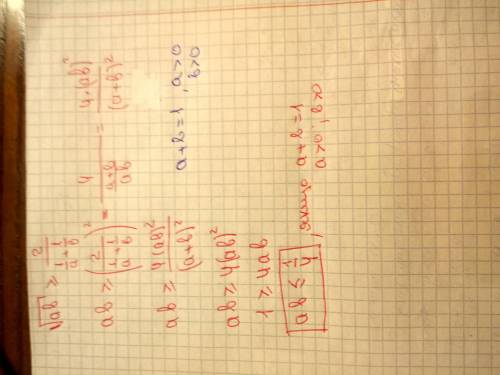 √ab ≥ 2/(1/a + 1/b)
ab ≥ (2/(1/a + 1/b))² = 4/((a+b)/ab) = 4·(ab)²/(a+b)²
ab ≥ 4(ab)²/(a+b)²
a+b=1, a>0
b>0
ab ≥ 4(ab)²
1 ≥ 4ab
ab ≤ 1/4, якщо a+b=1
a>0; b>0